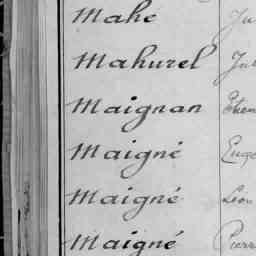 Mahe Ju
Mahurel Jul
Maignan Etien
Maigné Euge
Maigné Léon
Maigné Pierr